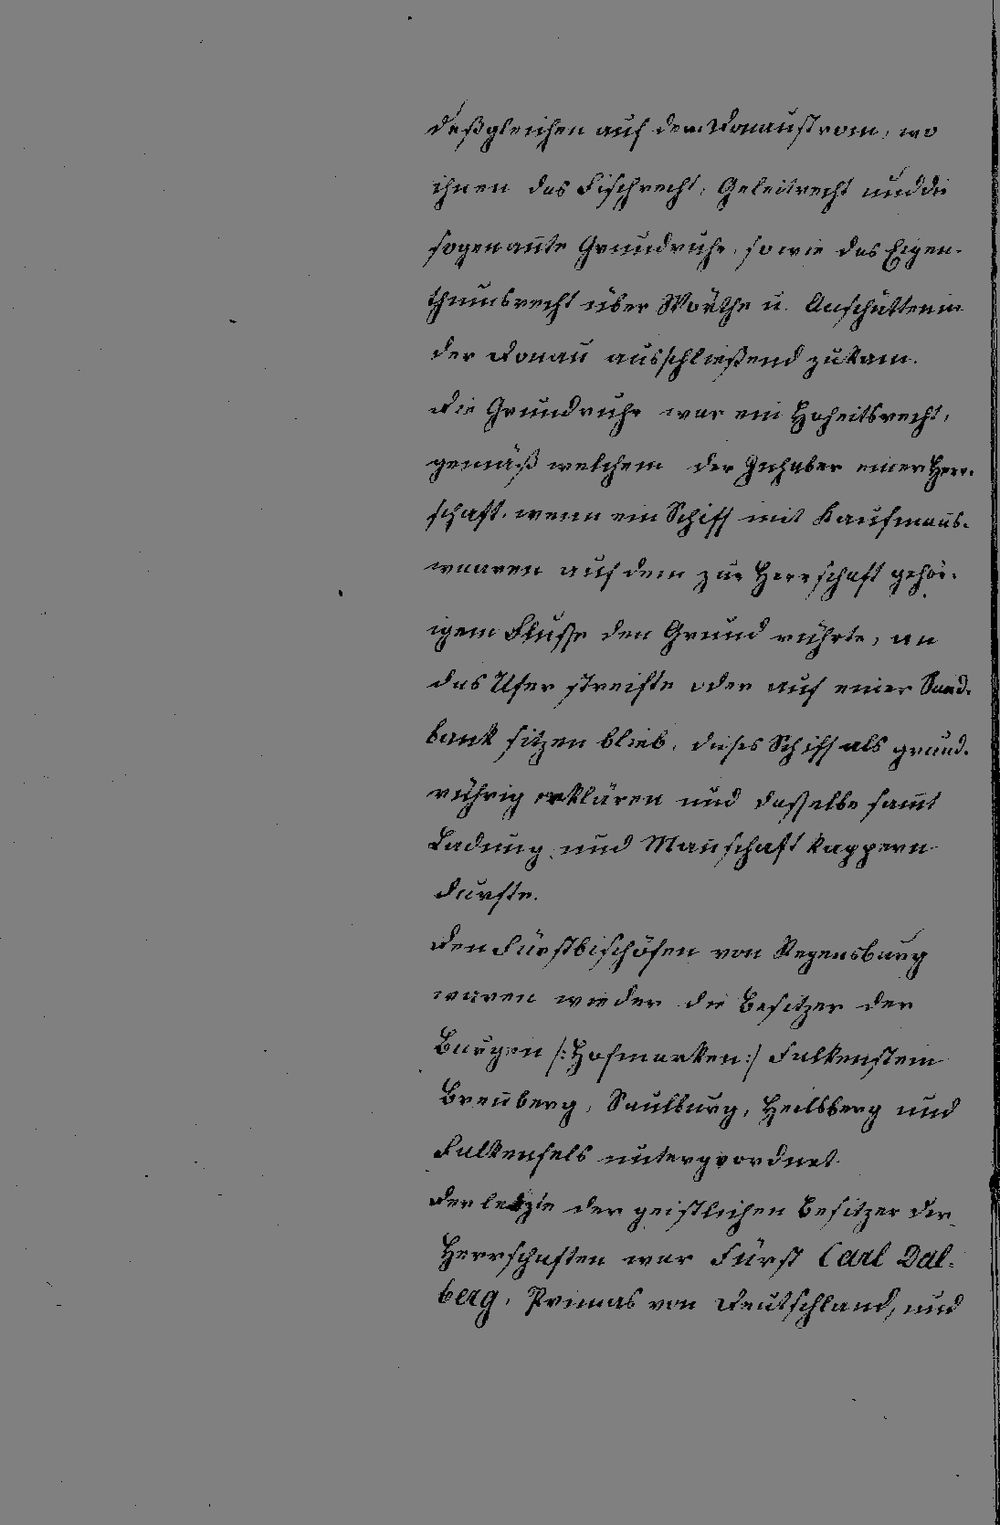 deßgleichen auf dem Donaustrom, wo
ihnen das Fischrecht, Geleitrecht und die
sogenañte Grundruhr, sowie das Eigen-
thumsrecht über Wörthe u. Anschütten in
der Donau ausschließend zukam.
Die Grundruhr war ein Hoheitsrecht,
gemäß welchem der Inhaber einer Herr-
schaft, wenn ein Schiff mit Kaufmañs-
waaren auf dem zur Herrschaft gehör-
igem Flusse den Grund rührte, an
das Ufer streifte oder auf einer Sand-
bank sitzen blieb, dieses Schiff als grund-
rührig erklären und dasselbe sam̃t
Ladung und Mañschaft kappern
durfte.
Den Fürstbischöfen von Regensburg
waren wieder die Besitzer der
Burgen /:Hofmarken:/ Falkenstein
Breñberg, Saulburg, Heilsberg und
Falkenfels untergeordnet.
Der letzte der geistlichen Besitzer der
Herrschaften war Fürst Carl Dal-
berg, Primas von Deutschland, und